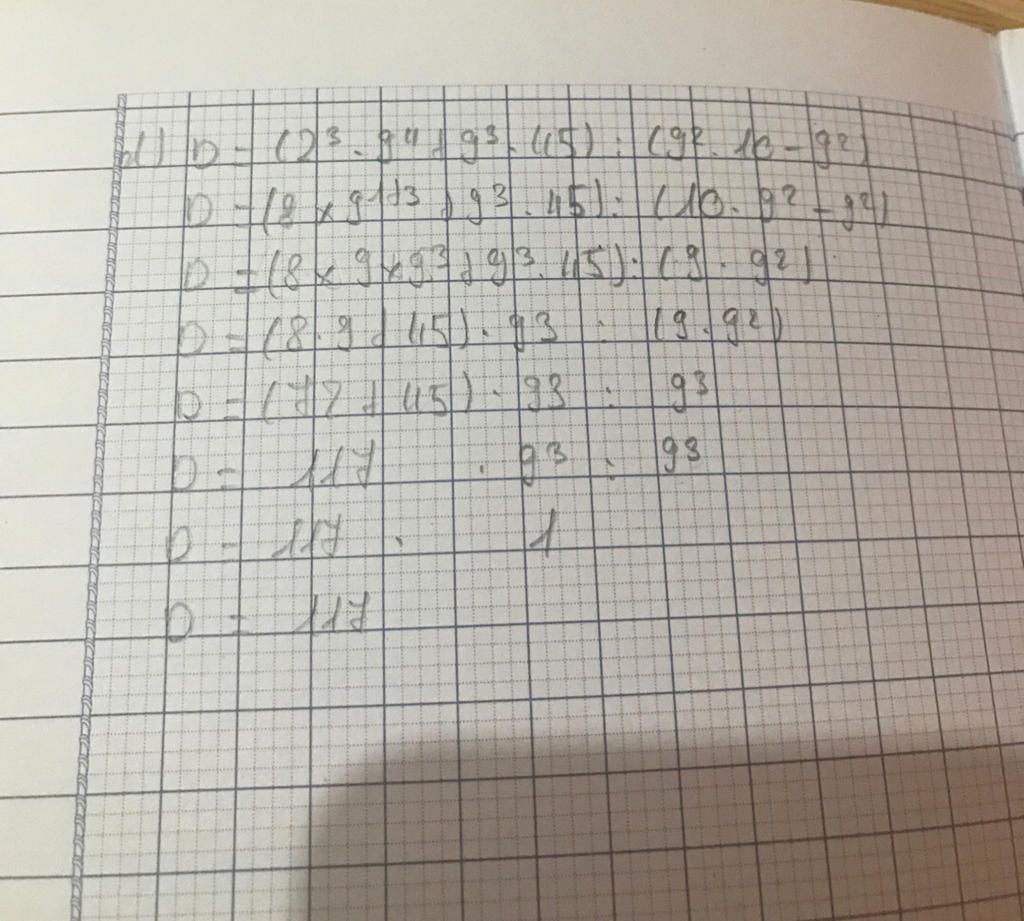 d) D = (2³ . 9⁴ + 9³ . 45) : (9² . 10 - 9²)
D = (8 x 9¹⁺³ + 9³ . 45) : (10 . 9² - 9²)
D = (8 x 9 x 9³ + 9³ . 45) : (9 . 9²)
D = (8 . 9 + 45) . 9³ : (9 . 9²)
D = (72 + 45) . 9³ : 9³
D = 117 . 9³ : 9³
D = 117 . 1
D = 117